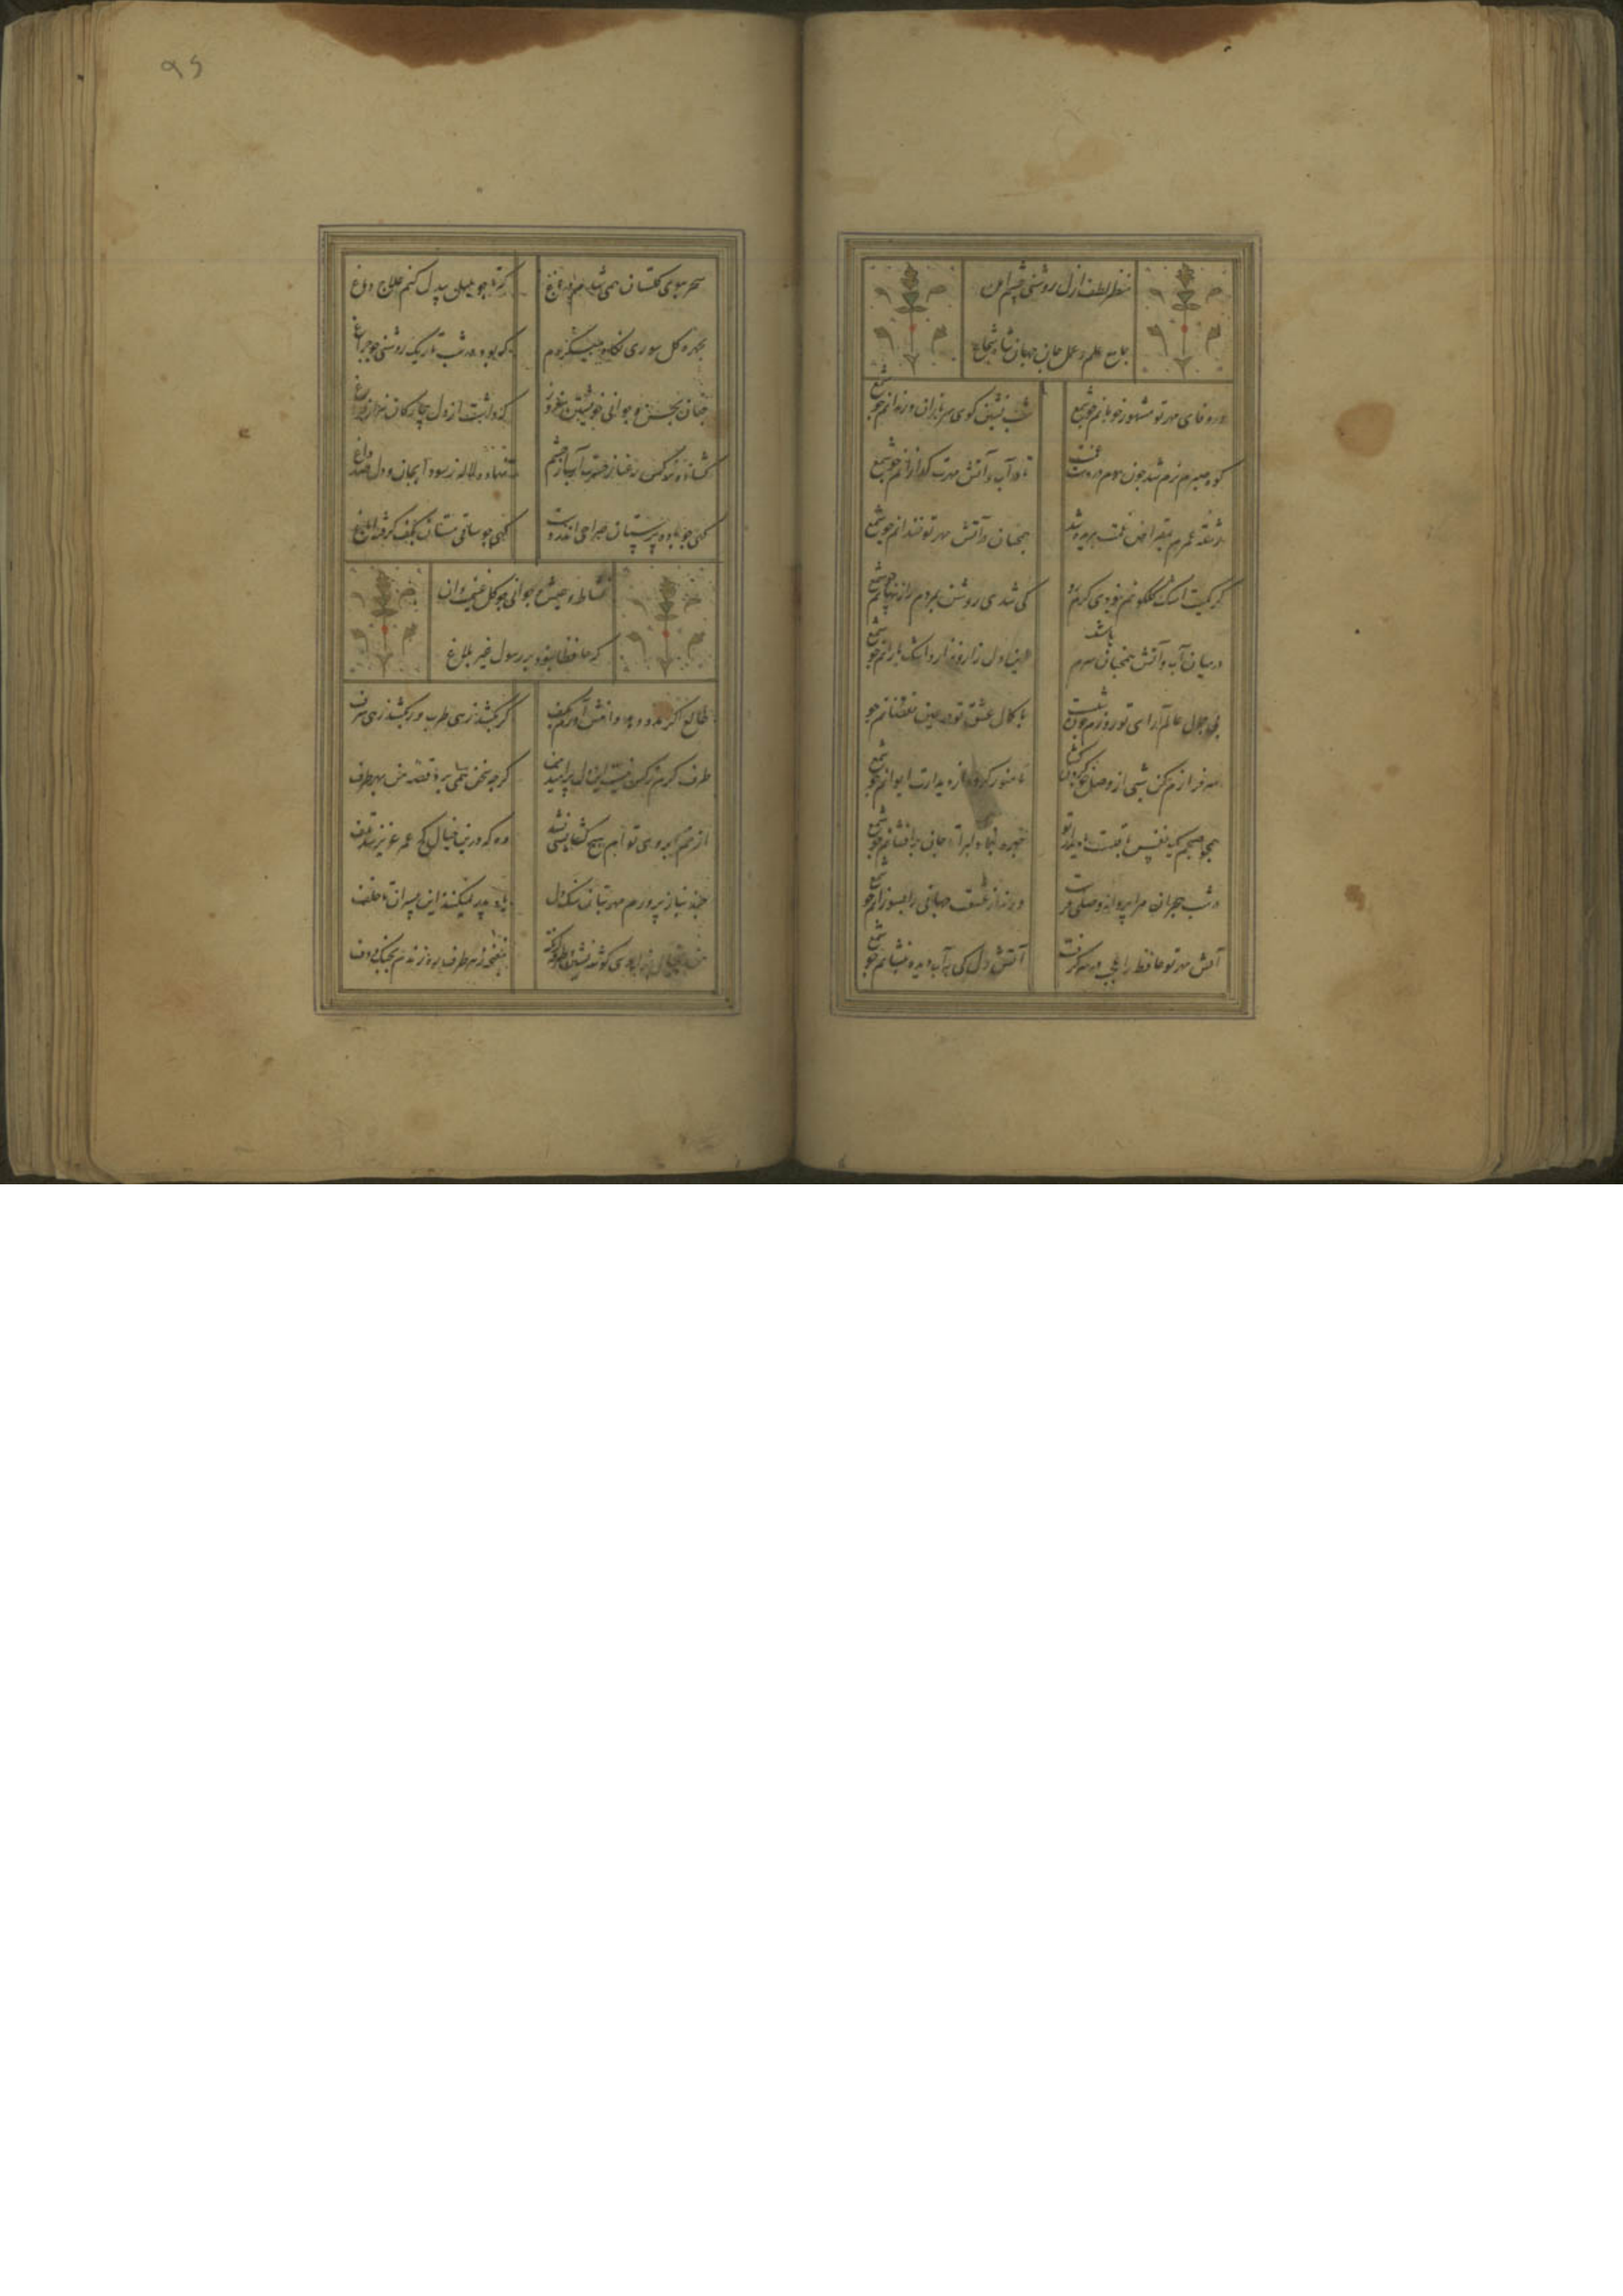 مظهر لطف ازل روشنی چشم امل
جامع علم و عمل جان جهان شاه شجاع
در وفای مهر تو مشهور خوبانم چو شمع
شب نشین کوی سربازان و رندانم چو شمع
کوه صبرم نرم شد چون موم در دست غمت
تا در آب و آتش مهرت کدازانم چو شمع
رشته عمرم بمقراض غمت ببریده شد
همچنان در آتش مهر تو خندانم چو شمع
کر کمیت اشک کلکونم نبودی کرم رو
کی شدی روشن بمردم راز پنهانم چو شمع
در میان آب و آتش همچنان سرگرم
این دل زار نزار و اشک بارانم چو شمع
بی جمال عالم آرای تو روزم چون شبست
با کمال عشق تو در عین نقصانم چو
سرفرازم کن شبی از وصل خود
تا منور کردد از دیدارت ایوانم چو شمع
همچو صبحم یک نفس باقیست با دیدار تو
چهره بنما دلبرا تا جان برافشانم چو شمع
در شب هجران مرا پروانه وصلی فرست
ورنه از عشقت جهانی را بسوزانم چو شمع
آتش مهر تو حافظ را عجب در سر گرفت
آتش دل کی بآب دیده بنشانم چو شمع
۹۶
سحر ببوی کلستان همی شدم در باغ
که تا چو بلبل بیدل کنم علاج دماغ
بچهره کل سوری نکاه میکردم
که بود در شب تاریک روشنی چو چراغ
چنان بحسن و جوانی خویشتن مغرور
که داشت از دل بلبل هزار گونه فراغ
کشاده نرکس رعنا ز حسرت آب از چشم
نهاده لاله ز سودا بجان و دل صد داغ
یکی چو باده پرستان صراحی اندر دست
یکی چو ساقی مستان بکف کرفته ایاغ
نشاط و عیش و جوانی چو کل غنیمت دان
که حافظا نبود بر رسول غیر بلاغ
طالع اکر مدد دهد دامنش آورم بکف
کر بکشد زهی طرب ور بکشد زهی شرف
طرف کرم ز کس نبست این دل پر امید من
کرچه سخن همی برد قصه من بهر طرف
از خم ابروی تو ام هیچ کشایشی نشد
وه که درین خیال کج عمر عزیز شد تلف
چند بناز پرورم مهر بتان سنکدل
یاد پدر نمیکنند این پسران ناخلف
من بخیال زاهدی کوشه نشین و طرفه آنکه
مغبچه ز هر طرف میزندم بچنک و دف